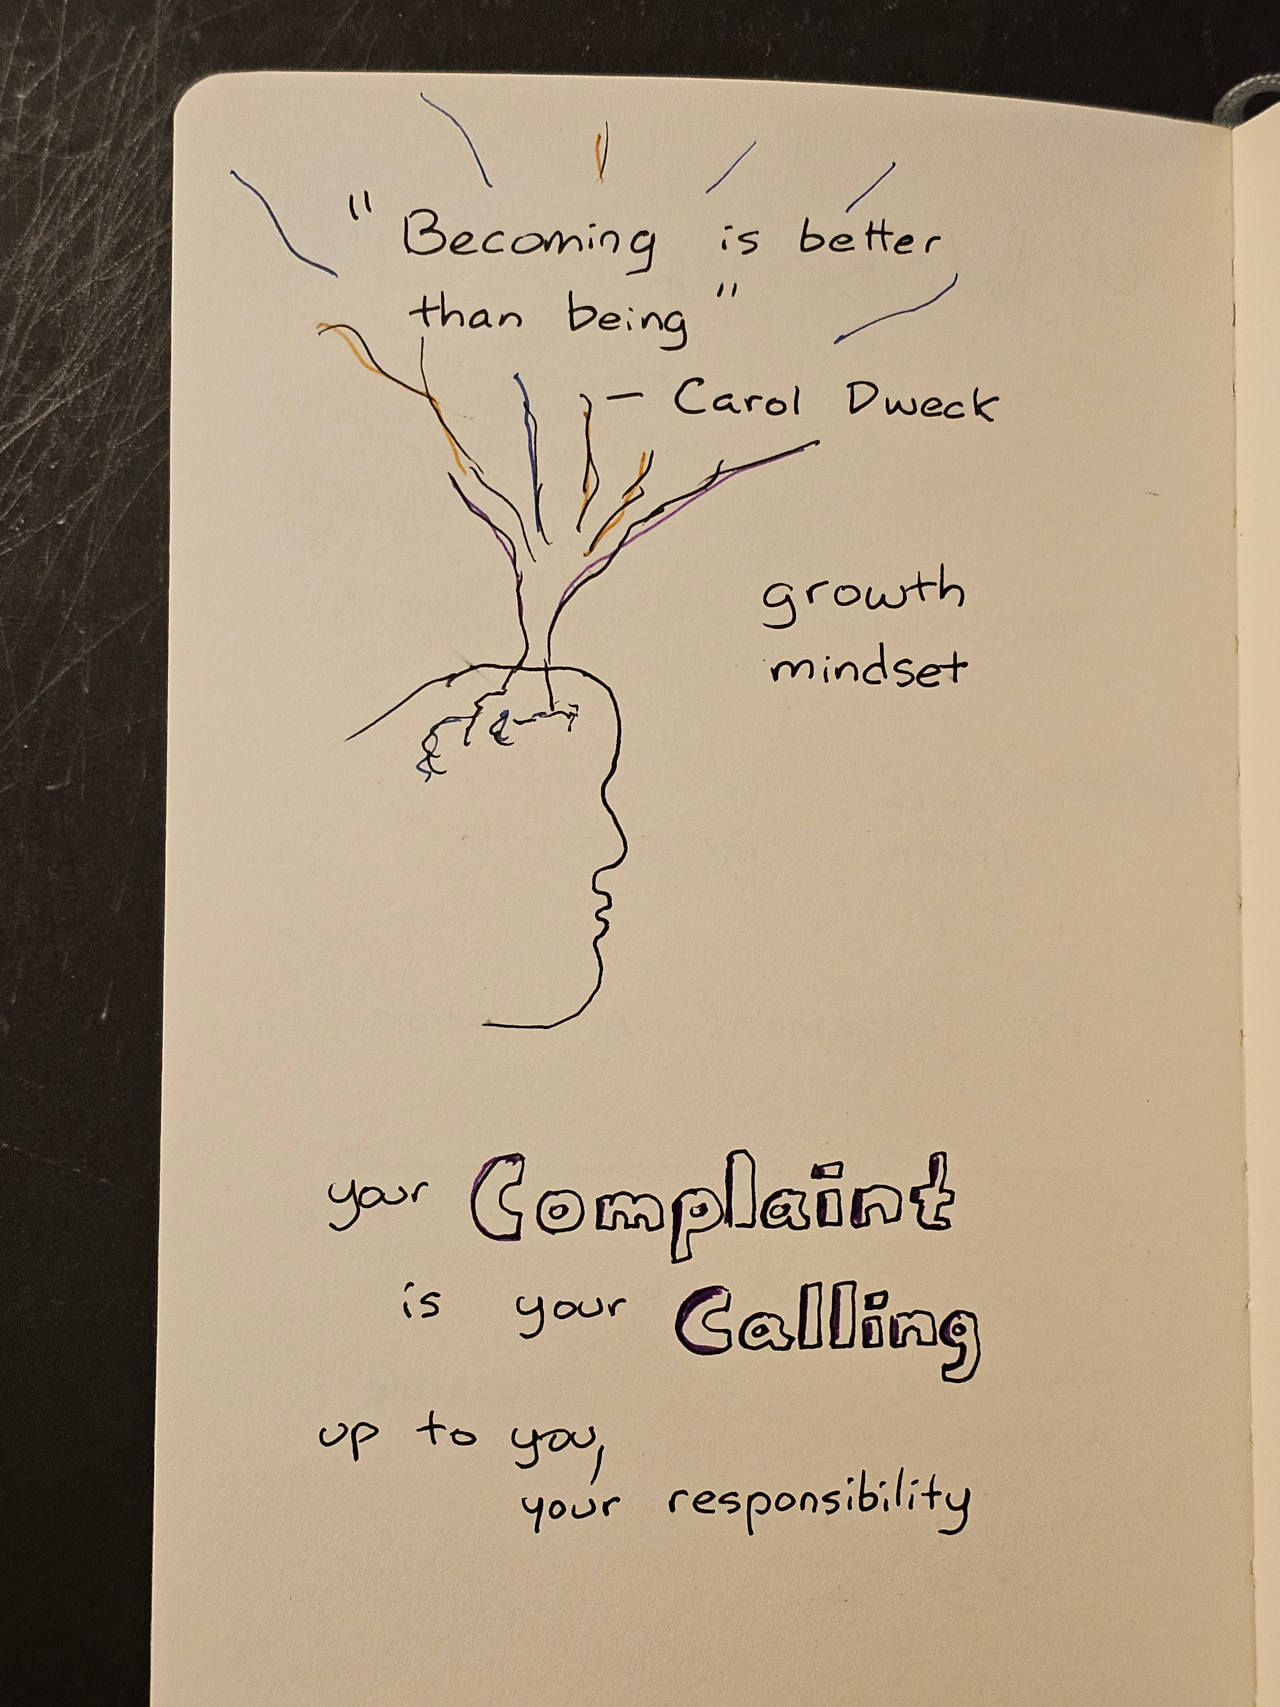 "Becoming is better
than being"
— Carol Dweck
growth
mindset
your Complaint
is your Calling
up to you,
your responsibility